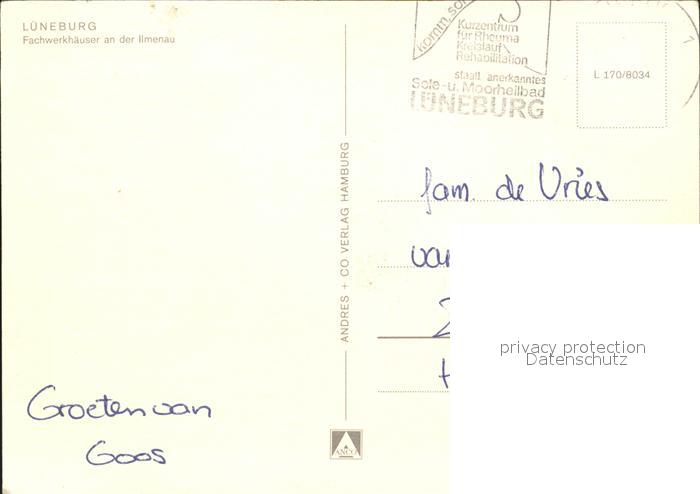 LÜNEBURG
Fachwerkhäuser an der Ilmenau
komm, so
Kurzentrum
für Rheuma
Kreislauf
Rehabilitation
staatl. anerkanntes
Sole- u. Moorheilbad
LÜNEBURG
L 170/8034
ANDRES + CO VERLAG HAMBURG
fam. de Vries
van
privacy protection
Datenschutz
Groeten van
Goos
ANCO